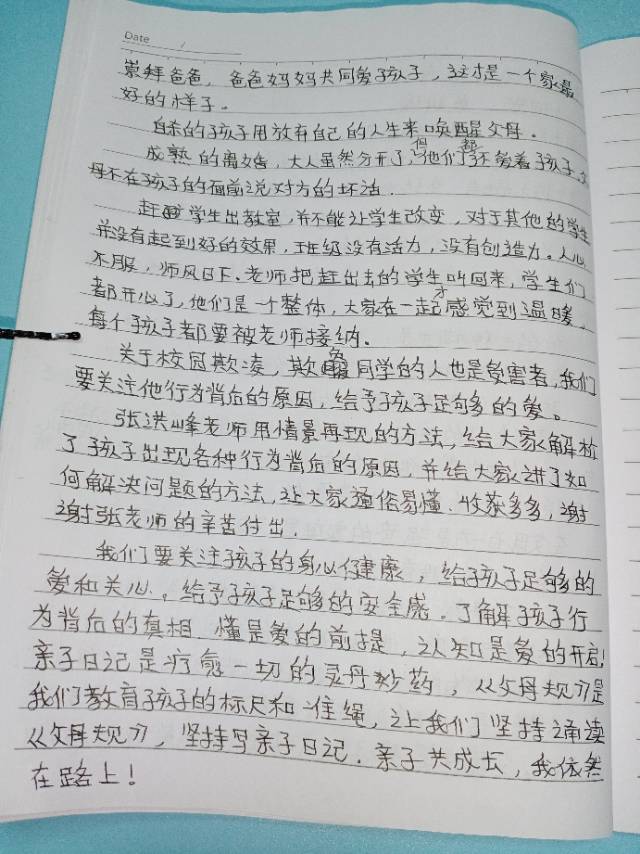 Date
崇拜爸爸,爸爸妈妈共同爱孩子,这才是一个家最
好的样子。
自杀的孩子用放弃自己的人生来唤醒父母。
成熟的离婚,大人虽然分开了,但他们都还爱着孩子,父
母不在孩子的面前说对方的坏话.
赶 学生出教室,并不能让学生改变,对于其他的学生
并没有起到好的效果,班级没有活力,没有创造力。人心
不服,师风日下.老师把赶出去的学生叫回来,学生们
都开心了,他们是一个整体,大家在一起才感觉到温暖,
每个孩子都要被老师接纳。
关于校园欺凌,欺负同学的人也是受害者,我们
要关注他行为背后的原因,给予孩子足够的爱。
张洪峰老师用情景再现的方法,给大家解析
了孩子出现各种行为背后的原因,并给大家讲了如
何解决问题的方法,让大家通俗易懂.收获多多,谢
谢张老师的辛苦付出.
我们要关注孩子的身心健康,给孩子足够的
爱和关心,给予孩子足够的安全感.了解孩子行
为背后的真相.懂是爱的前提,认知是爱的开启!
亲子日记是疗愈一切的灵丹妙药,从父母规刀是
我们教育孩子的标尺和准绳,让我们坚持诵读
从父母规刀,坚持写亲子日记.亲子共成长,我依然
在路上!